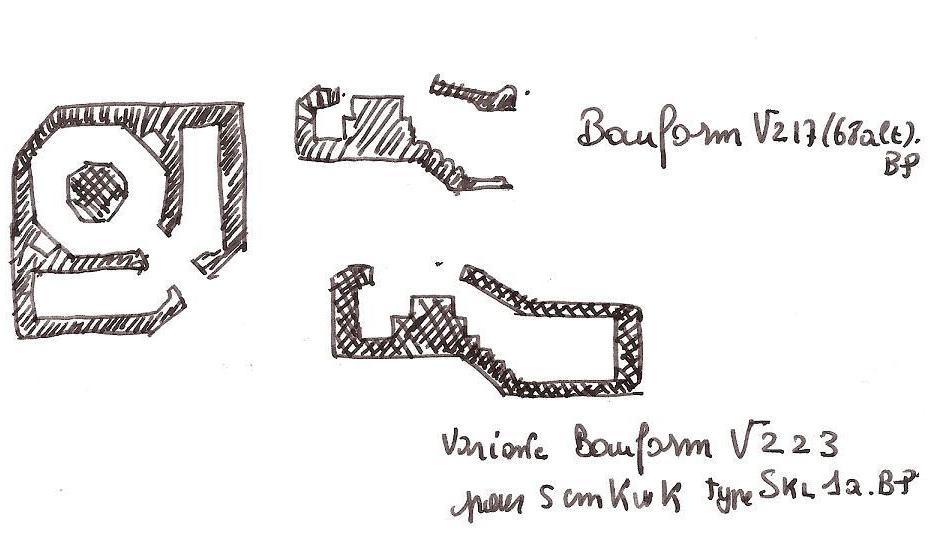 Bauform V217(68alt).
BP
Variante Bauform V223
pour 5 cm KwK type SKL 1a.BP